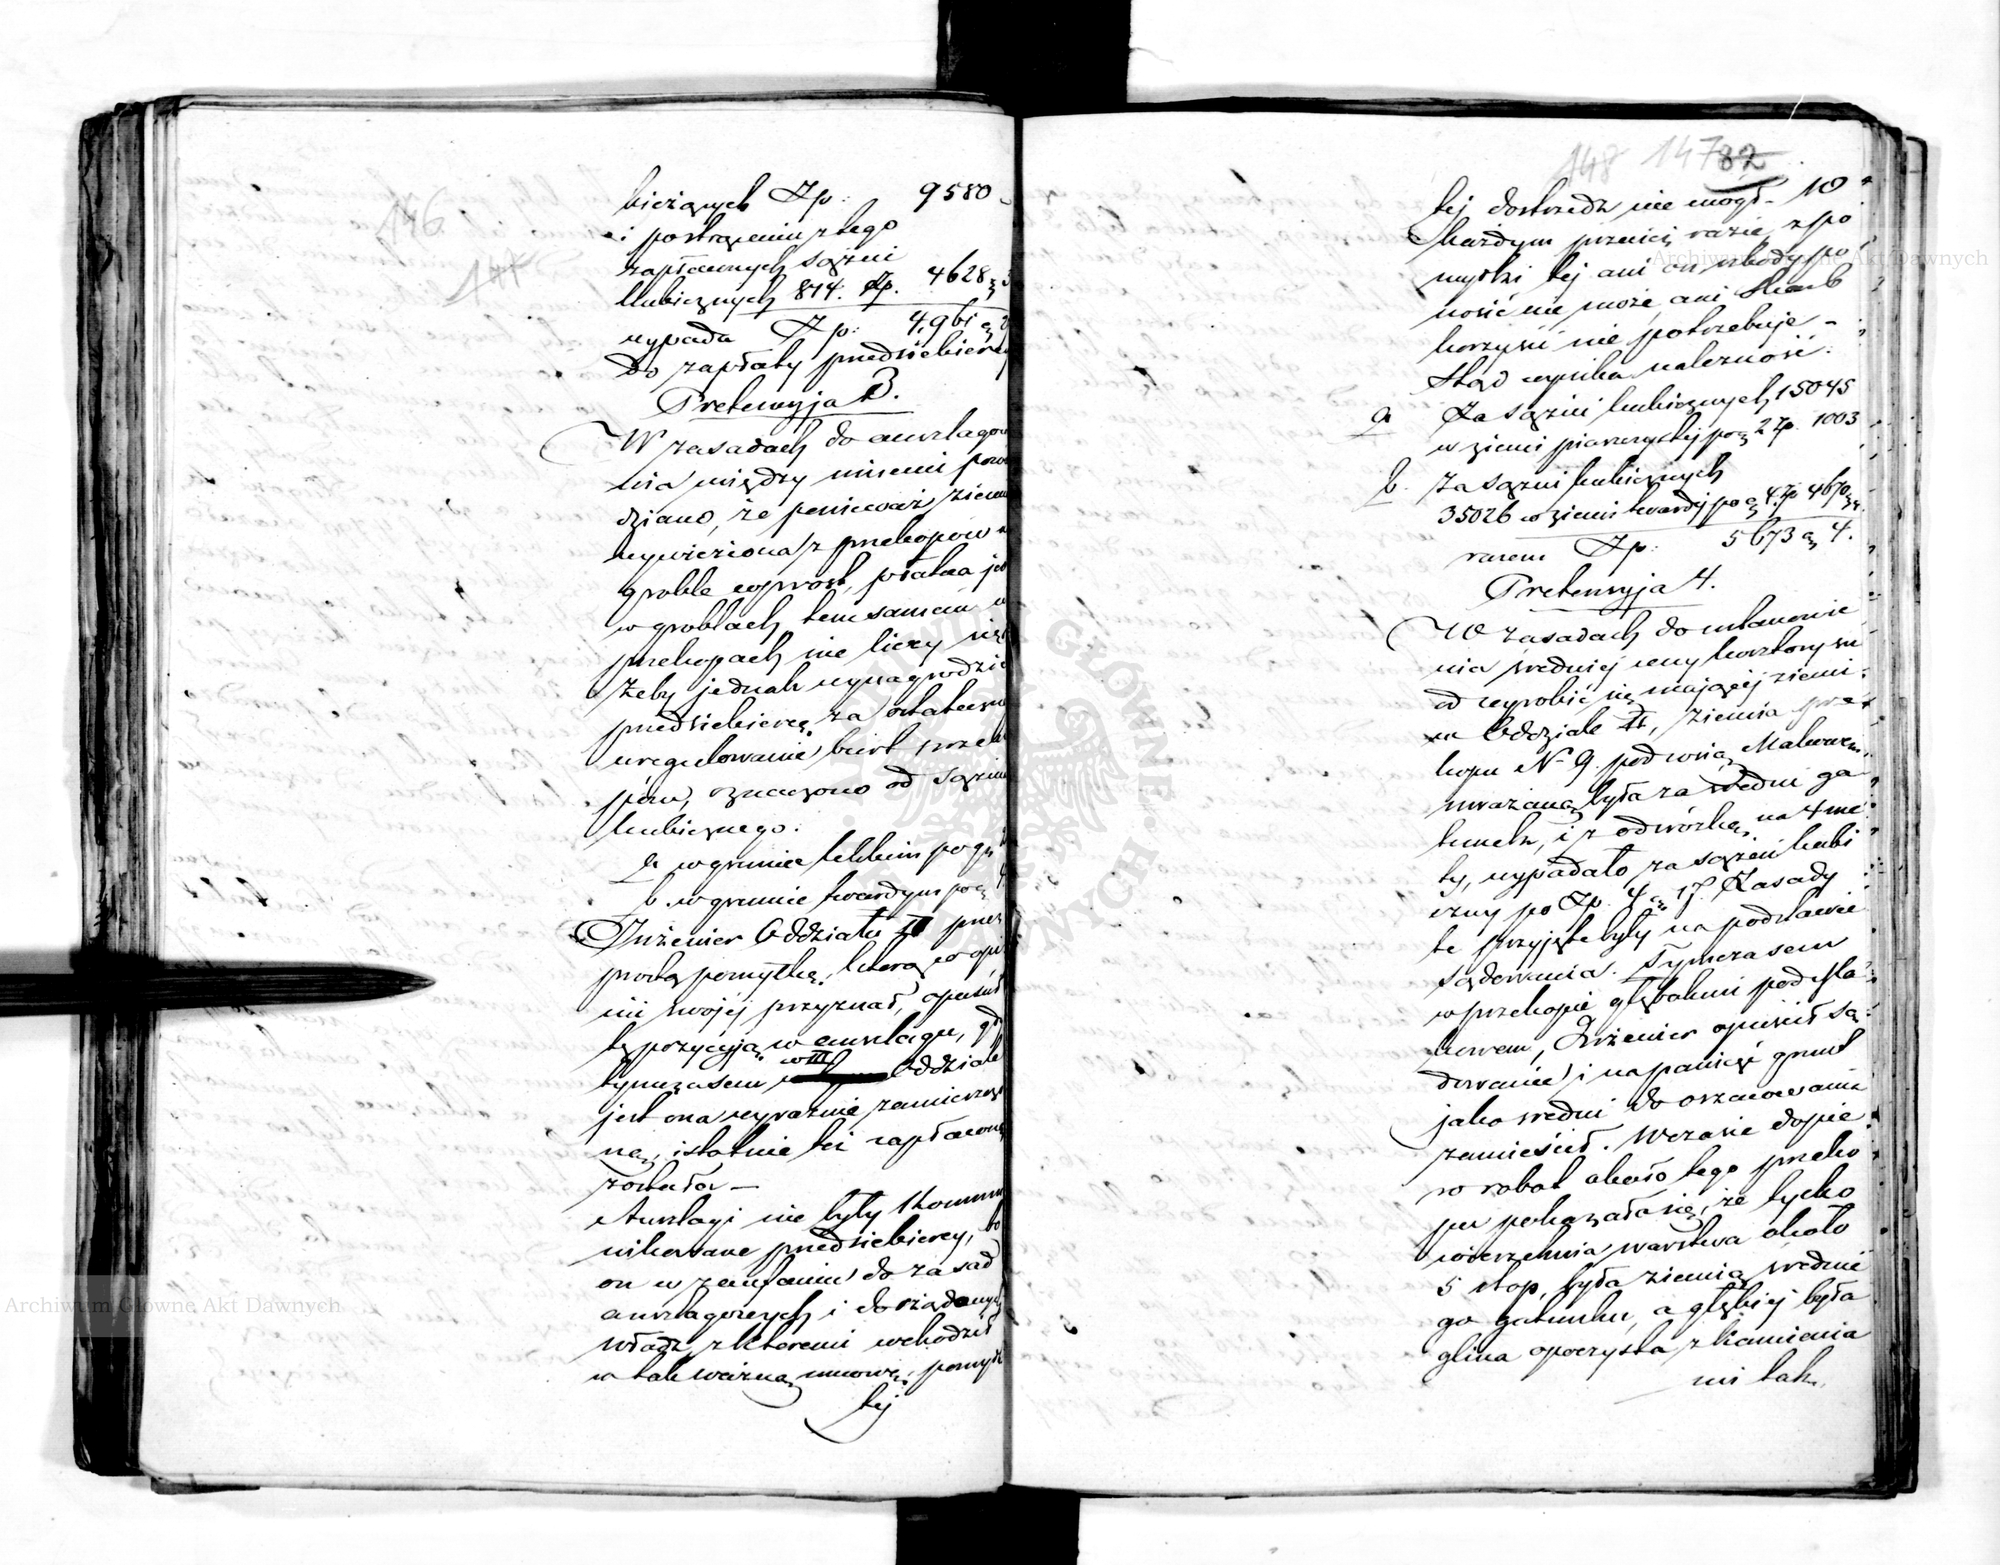 146
144
bieżących Zp: 9580
i postrąceniu z tego
zapłaconych sążni
kubicznych 874. Zp. 4628
wypada Zp: 4,961
do zapłaty przedsiebiercy
Pretensyja 3.
W zasadach do anszlagow
nia między innemi powie
dziano, że ponieważ ziemia
wywieziona z przekopów
groble wprost, płatna jest
w groblach, tem samem w
przekopach nie liczy się
Żeby jednak wynagrodzić
przedsiebiercę za ostateczne
uregulowanie burt przeko
pów, oznaczono od sążnia
kubicznego:
a w gruncie lekkim po gr
b. w gruncie twardym po gr
Inżenier Oddziału II przez
prostą pomyłkę, którą w opi
nii swojej przyznał, opuścił
tę pozycyją w anszlagu, gdy
w III
tymczasem Oddziale
jest ona wyraźnie zamieszczo
ną, istotnie też zapłaconą
została —
Anszlagi nie były kommu
nikowane przedsiebiercy, bo
on w zaufaniu do zasad
anszlagowych i do rządowych
władz z któremi wchodził
w tak ważną umowę, pomył
tej
148 147 82
tej dostrzedz nie mógł – W
każdym przecież razie z po
myłki tej ani on szkody po
nosić nie może, ani Skarb
korzyści nie potrzebuje –
Stąd wynika należność:
a Za sążni kubicznych 15045
w ziemi piasczystej po gr 2 Zp. 1003
b. Za sążni kubicznych
35026 w ziemi twardej po gr 4 Zp 4670
razem Zp: 5673 gr 4.
Pretensyja 4.
W zasadach do ustanowie
nia średniej ceny kosztorysu
od wyrobić się mającej ziemi
w Oddziale II, ziemia prze
kopu N 9. pod wsią
uważaną była za średni ga
tunek, i z odwózką na 4 me
ty, wypadało za sążeń kubi
czny po Zp. 4 gr 17. Zasady
te przyjęte były na podstawie
sądowania. Tymczasem
w przekopie głębokim pod
kowem, Inżenier opuścił są
dowanie i na pamięć grunt
jako średni do oszacowania
zamieścił. W czasie dopie
ro robot około tego przeko
pu pokazało się, że tylko
wierzchnia warstwa około
5 stop, była ziemią średnie
go gatunku, a głębiej była
glina opoczysta z kamienia
mi tak
Archiwum Główne Akt Dawnych
Archiwum Główne Akt Dawnych